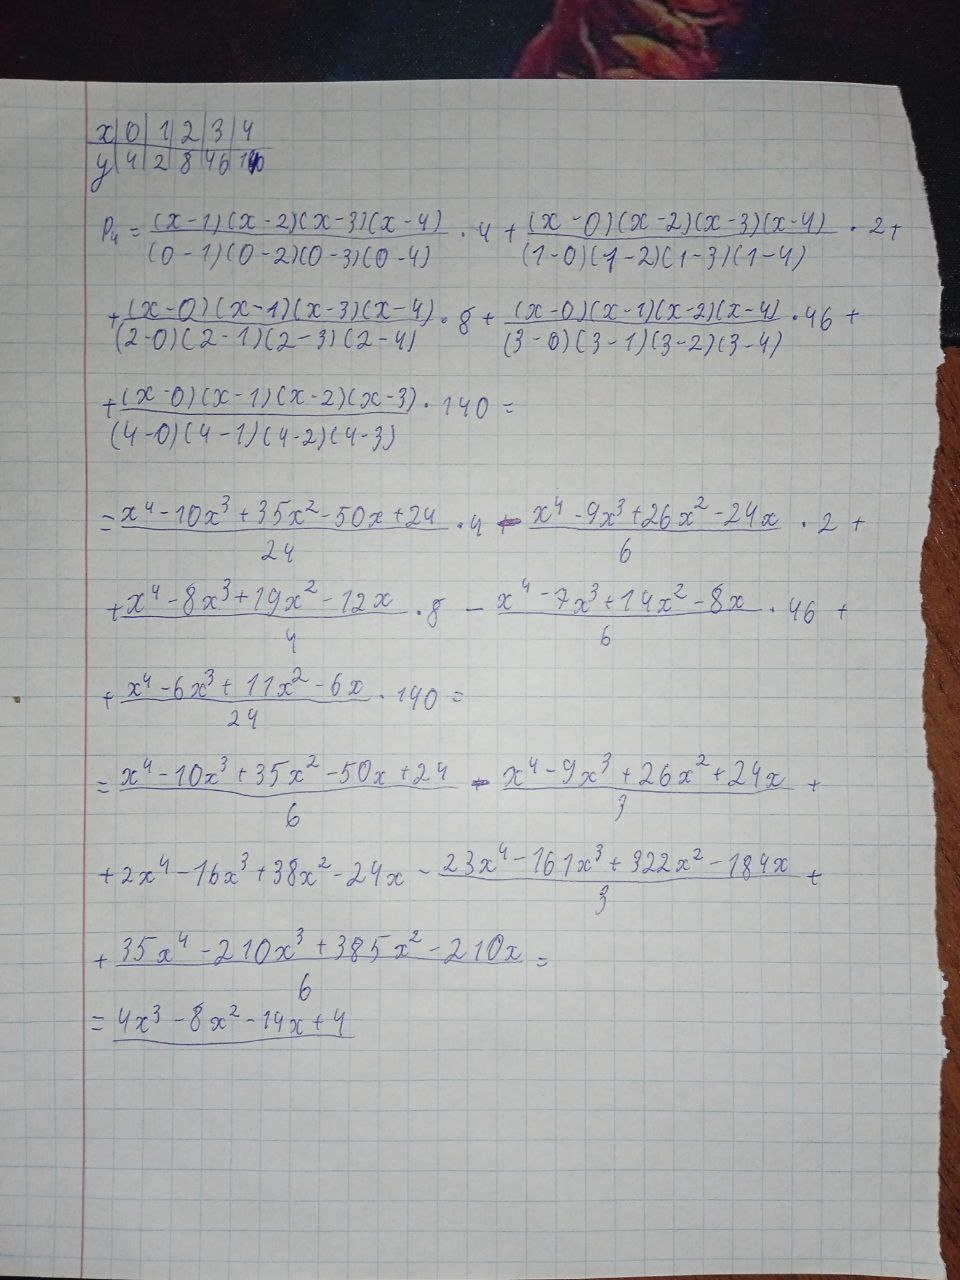 x | 0 | 1 | 2 | 3 | 4
y | 4 | 2 | 8 | 46 | 140
P₄ = (x-1)(x-2)(x-3)(x-4)/(0-1)(0-2)(0-3)(0-4) · 4 + (x-0)(x-2)(x-3)(x-4)/(1-0)(1-2)(1-3)(1-4) · 2 +
+ (x-0)(x-1)(x-3)(x-4)/(2-0)(2-1)(2-3)(2-4) · 8 + (x-0)(x-1)(x-2)(x-4)/(3-0)(3-1)(3-2)(3-4) · 46 +
+ (x-0)(x-1)(x-2)(x-3)/(4-0)(4-1)(4-2)(4-3) · 140 =
= x⁴-10x³+35x²-50x+24/24 · 4 - x⁴-9x³+26x²-24x/6 · 2 +
+ x⁴-8x³+19x²-12x/4 · 8 - x⁴-7x³+14x²-8x/6 · 46 +
+ x⁴-6x³+11x²-6x/24 · 140 =
= x⁴-10x³+35x²-50x+24/6 - x⁴-9x³+26x²+24x/3 +
+ 2x⁴-16x³+38x²-24x - 23x⁴-161x³+322x²-184x/3 +
+ 35x⁴-210x³+385x²-210x/6 =
= 4x³-8x²-14x+4